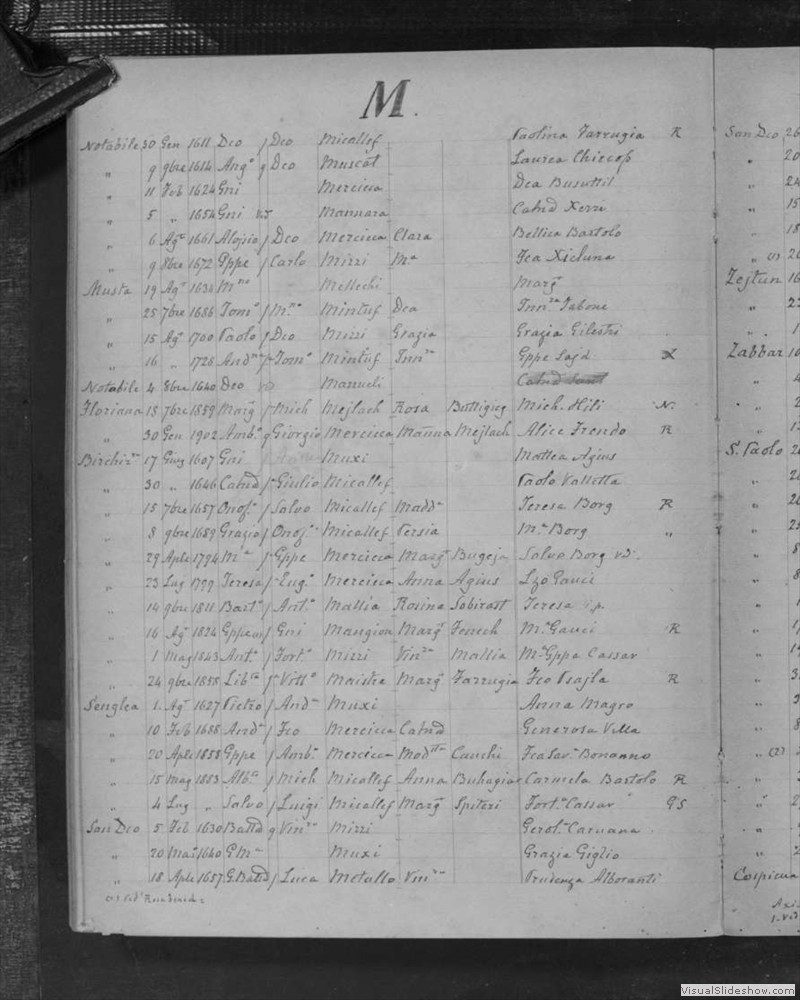 M.
Notabile 30 Gen 1611 Deo / Deo Micallef Paolina Farrugia R
" 9 9bre 1614 Ang.o 9 Deo Muscat Laurea Chircop
" 11 Feb 1624 Gni Mercieca Dea Busuttil
" 5 " 1654 Gni Mannara Catnd Xerri
" 6 Ag.o 1661 Alojsio / Deo Mercieca Clara Bellica Bartolo
" 9 8bre 1672 Gppe / Carlo Mizzi M.a Fca Xicluna
Musta 19 Ag.o 1634 M.no Mellechi Marg.a
" 25 7bre 1686 Tom.o / M.no Mintuf Dea Inn.za Fabone
" 15 Ag.o 1700 Paolo / Deo Mizzi Grazia Grazia Gilestri
" 16 " 1728 And. / Tom.o Mintuf Inn.za Gppe Sajd X
Notabile 4 8bre 1640 Deo Mamuch Catnd
Floriana 18 7bre 1889 Marg.a / Mich Mejlach Rosa Buttigieg Mich. Hili N.
" 30 Gen 1902 Amb.o 9 Giorgio Mercieca Manna Mejlach Alice Trendo R
Birchir. 17 Giug 1607 Gni Muxi Mattea Agius
" 30 " 1646 Catnd / Giulio Micallef Paolo Valletta
" 15 7bre 1657 Onof.o / Salvo Micallef Madd.a Teresa Borg R
" 8 9bre 1689 Grazio / Onof.o Micallef Persia M.a Borg "
" 29 Aple 1794 M.a / Gppe Mercieca Marg.a Bugeja Salvo Borg vd.
" 23 Lug 1799 Teresa / Eug.o Mercieca Anna Agius Lzo Gauci
" 14 9bre 1811 Bart.o / Ant.o Mallia Rosina Sobirast Teresa i.p.
" 16 Ag.o 1824 Gppe / Gni Mangion Marg.a Fenech M.a Gauci R
" 1 Mag 1843 Ant.o / Fort.o Mizzi Vin.za Mallia M.a Gppa Cassar
" 24 9bre 1858 Lib.ta / Vitt.o Maistre Marg.a Farrugia Fco Psajla R
Senglea 1. Ag.o 1627 Pietro / And.a Muxi Anna Magro
" 10 Feb 1688 And.a / Fco Mercieca Catnd Generosa Vella
" 20 Aple 1858 Gppe / Amb.o Mercieca Mod.sta Cauchi Fca Sav.a Bonanno
" 15 Mag 1883 Alb.to / Mich Micallef Anna Buhagiar Carmela Bartolo R
" 4 Lug " Salvo / Luigi Micallef Marg.a Spiteri Fort.a Cassar 95
San Deo 5 Feb 1630 Battd 9 Vin.zo Mizzi Gerol.a Caruana
" 20 1640 G M. Muxi Grazia Giglio
" 18 Aple 1657 G.Battd / Luca Metallo Vin.za Prudenza Alboranti
San Deo 26
" 20
" 24
" 15
" 18
Zejtun 16
Zabbar 10
S. Paolo
Cospicua
VisualSlideshow.com